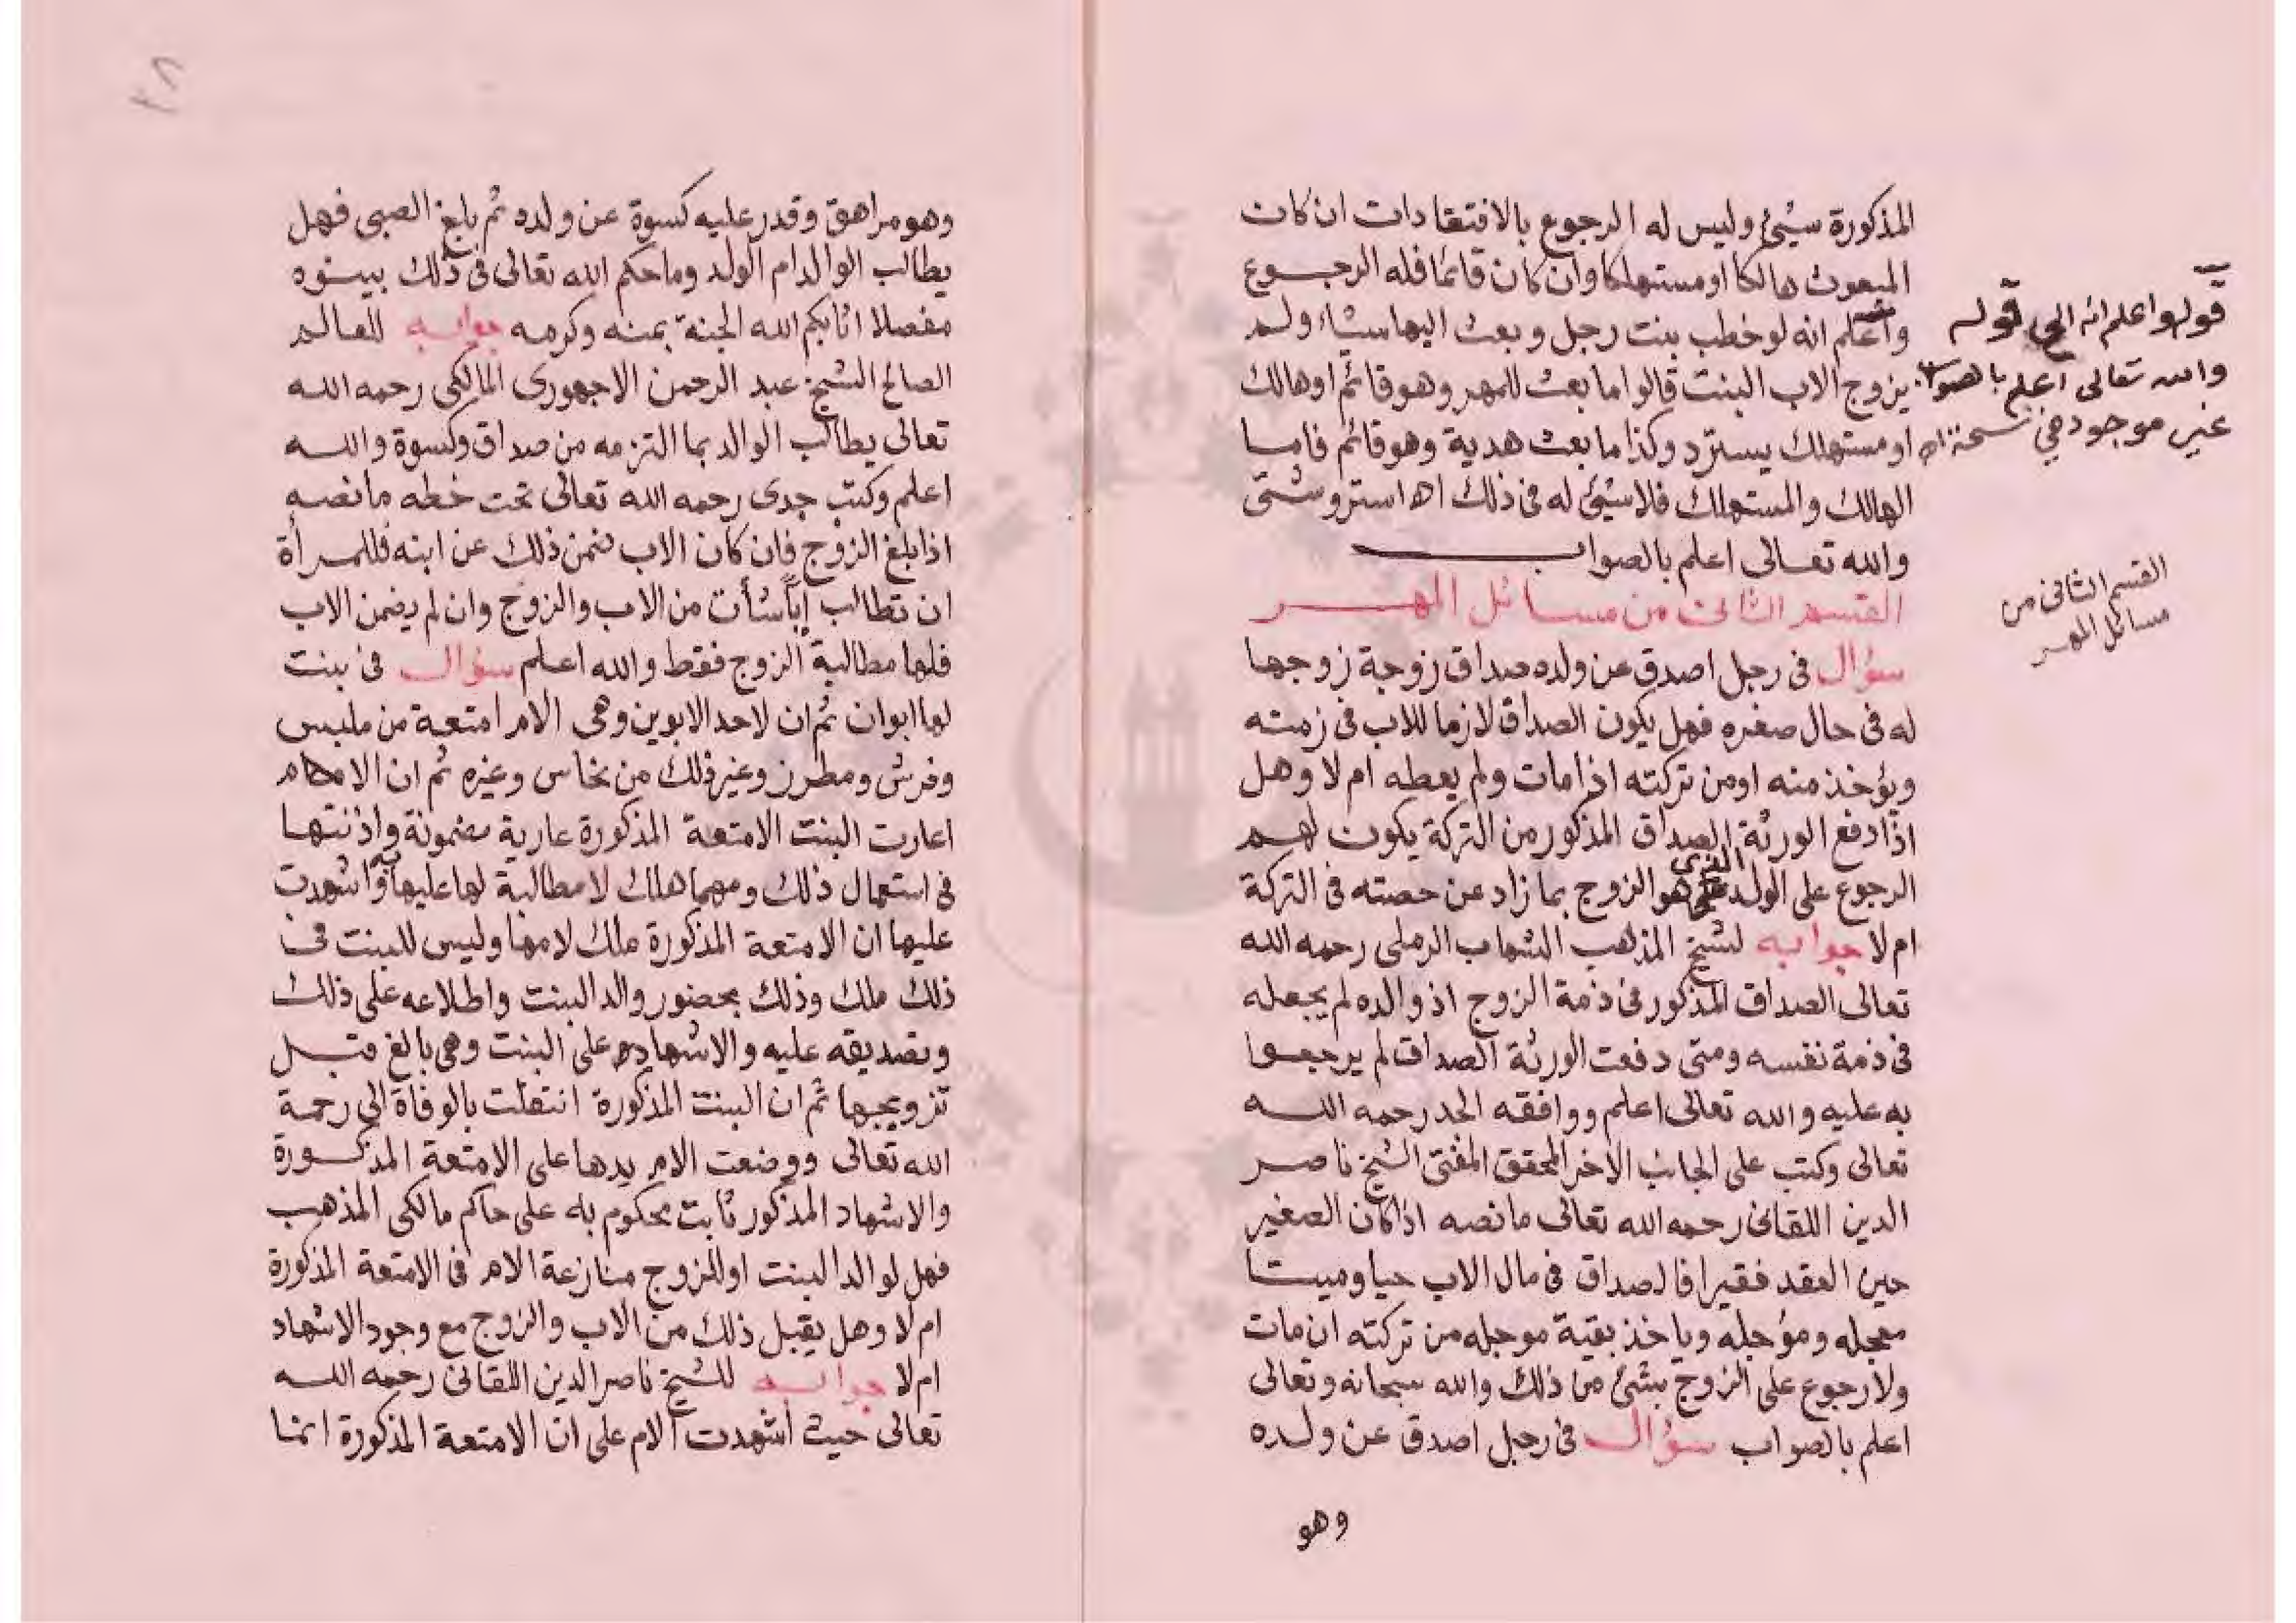 المذكورة شيئ وليس له الرجوع بالافتقادات ان كان
المبعوث هالكا او مستهلكا وان كان قائما فله الرجوع
واعلم انه لو خطب بنت رجل وبعث اليها مشاء ولم
يزوج الاب البنت قالوا ما بعث للمهر وهو قائم او هالك
او مستهلك يسترد وكذا ما بعث هدية وهو قائم فاما
الهالك والمستهلك فلا شيئ له فى ذلك اه استروشنى
والله تعالى اعلم بالصواب
القسم الثانى من مسائل المهر
سؤال فى رجل اصدق عن ولده صداق زوجة زوجها
له فى حال صغره فهل يكون الصداق لازما للاب فى زمته
ويؤخذ منه او من تركته اذا مات ولم يعطه ام لا وهل
اذا دفع الورثة الصداق المذكور من التركة يكون لهم
الرجوع على الولد الذى هو الزوج بما زاد عن حصته فى التركة
ام لا جوابه لشيخ المذهب الشهاب الرملى رحمه الله
تعالى الصداق المذكور فى ذمة الزوج اذ والده لم يجعله
فى ذمة نفسه ومتى دفعت الورثة الصداق لم يرجعوا
به عليه والله تعالى اعلم ووافقه الجد رحمه الله
تعالى وكتب على الجانب الاخر المحقق المفتى الشيخ ناصر
الدين اللقانى رحمه الله تعالى ما نصه اذا كان الصغير
حين العقد فقيرا فالصداق فى مال الاب حيا وميتا
معجله ومؤجله وياخذ بقية موجله من تركته ان مات
ولا رجوع على الزوج بشئ من ذلك والله سبحانه وتعالى
اعلم بالصواب سؤال فى رجل اصدق عن ولده
وهو
قوله واعلم انه الى قوله
والله تعالى اعلم بالصواب
غير موجود في نسخة اه
القسم الثانى من
مسائل المهر
وهو مراهق وقدر عليه كسوة عن ولده ثم بلغ الصبى فهل
يطالب الوالد ام الولد وما حكم الله تعالى فى ذلك بينوه
مفصلا اثابكم الله الجنة بمنه وكرمه جوابه للعالم
الصالح الشيخ عبد الرحمن الاجهورى المالكى رحمه الله
تعالى يطالب الوالد بما التزمه من صداق وكسوة والله
اعلم وكتب جدى رحمه الله تعالى تحت خطه ما نصه
اذا بلغ الزوج فان كان الاب ضمن ذلك عن ابنه فللمرأة
ان تطالب اياً شأت من الاب والزوج وان لم يضمن الاب
فلها مطالبة الزوج فقط والله اعلم سؤال فى بنت
لها ابوان ثم ان لاحد الابوين وهى الام امتعة من ملبس
وفرش ومطرز وغير ذلك من نحاس وغيره ثم ان الام
اعارت البنت الامتعة المذكورة عارية مضمونة واذنتها
فى استعمال ذلك ومهما هلك لا مطالبة لها عليها به واشهدت
عليها ان الامتعة المذكورة ملك لامها وليس للبنت فى
ذلك ملك وذلك بحضور والد البنت واطلاعه على ذلك
وتصديقه عليه والاشهاد على البنت وهى بالغ قبل
تزويجها ثم ان البنت المذكورة انتقلت بالوفاة الى رحمة
الله تعالى ووضعت الام يدها على الامتعة المذكورة
والاشهاد المذكور ثابت محكوم به على حاكم مالكى المذهب
فهل لوالد البنت او للزوج منازعة الام فى الامتعة المذكورة
ام لا وهل يقبل ذلك من الاب والزوج مع وجود الاشهاد
ام لا جوابه للشيخ ناصر الدين اللقانى رحمه الله
تعالى حيث اشهدت الام على ان الامتعة المذكورة انما